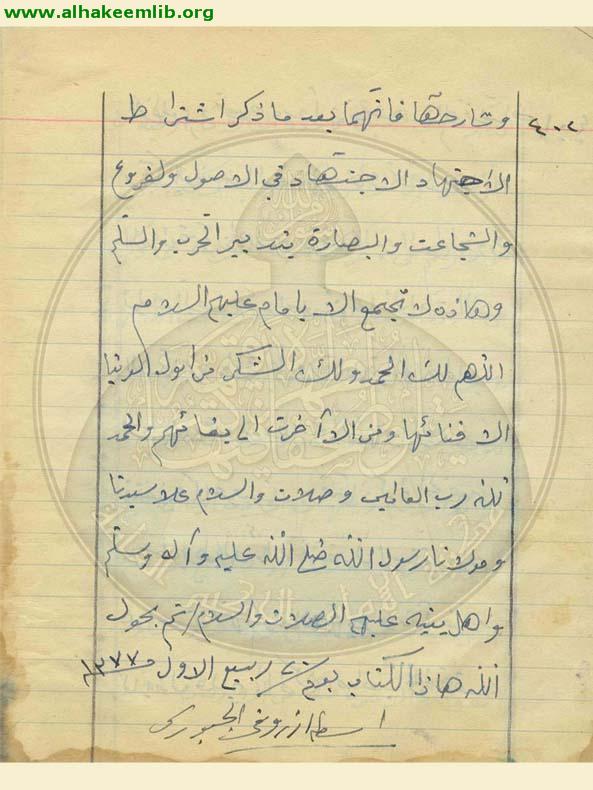 www.alhakeemlib.org
٤٠٢
وشارحها فانهما بعد ما ذكر اشتراط
الاجتهاد الاجتهاد في الاصول ولفروع
والشجاعت والبصارة بتدبير الحرب والسلم
وهاذه لا تجتمع الا بامام عليهم السلام
اللهم لك الحمد ولك الشكر من اول الدنيا
الا فنائها ومن الاآخرت الى بقائهم والحمد
لله رب العالمين وصلات والسلام علا سيدنا
ومولانا رسول الله صلى الله عليه وآله وسلم
واهل بيته عليهم الصلات والسلام / تم بحول
الله هاذا الكتاب يوم ٢٠ ربيع الاول ١٣٧٧
الجبوري